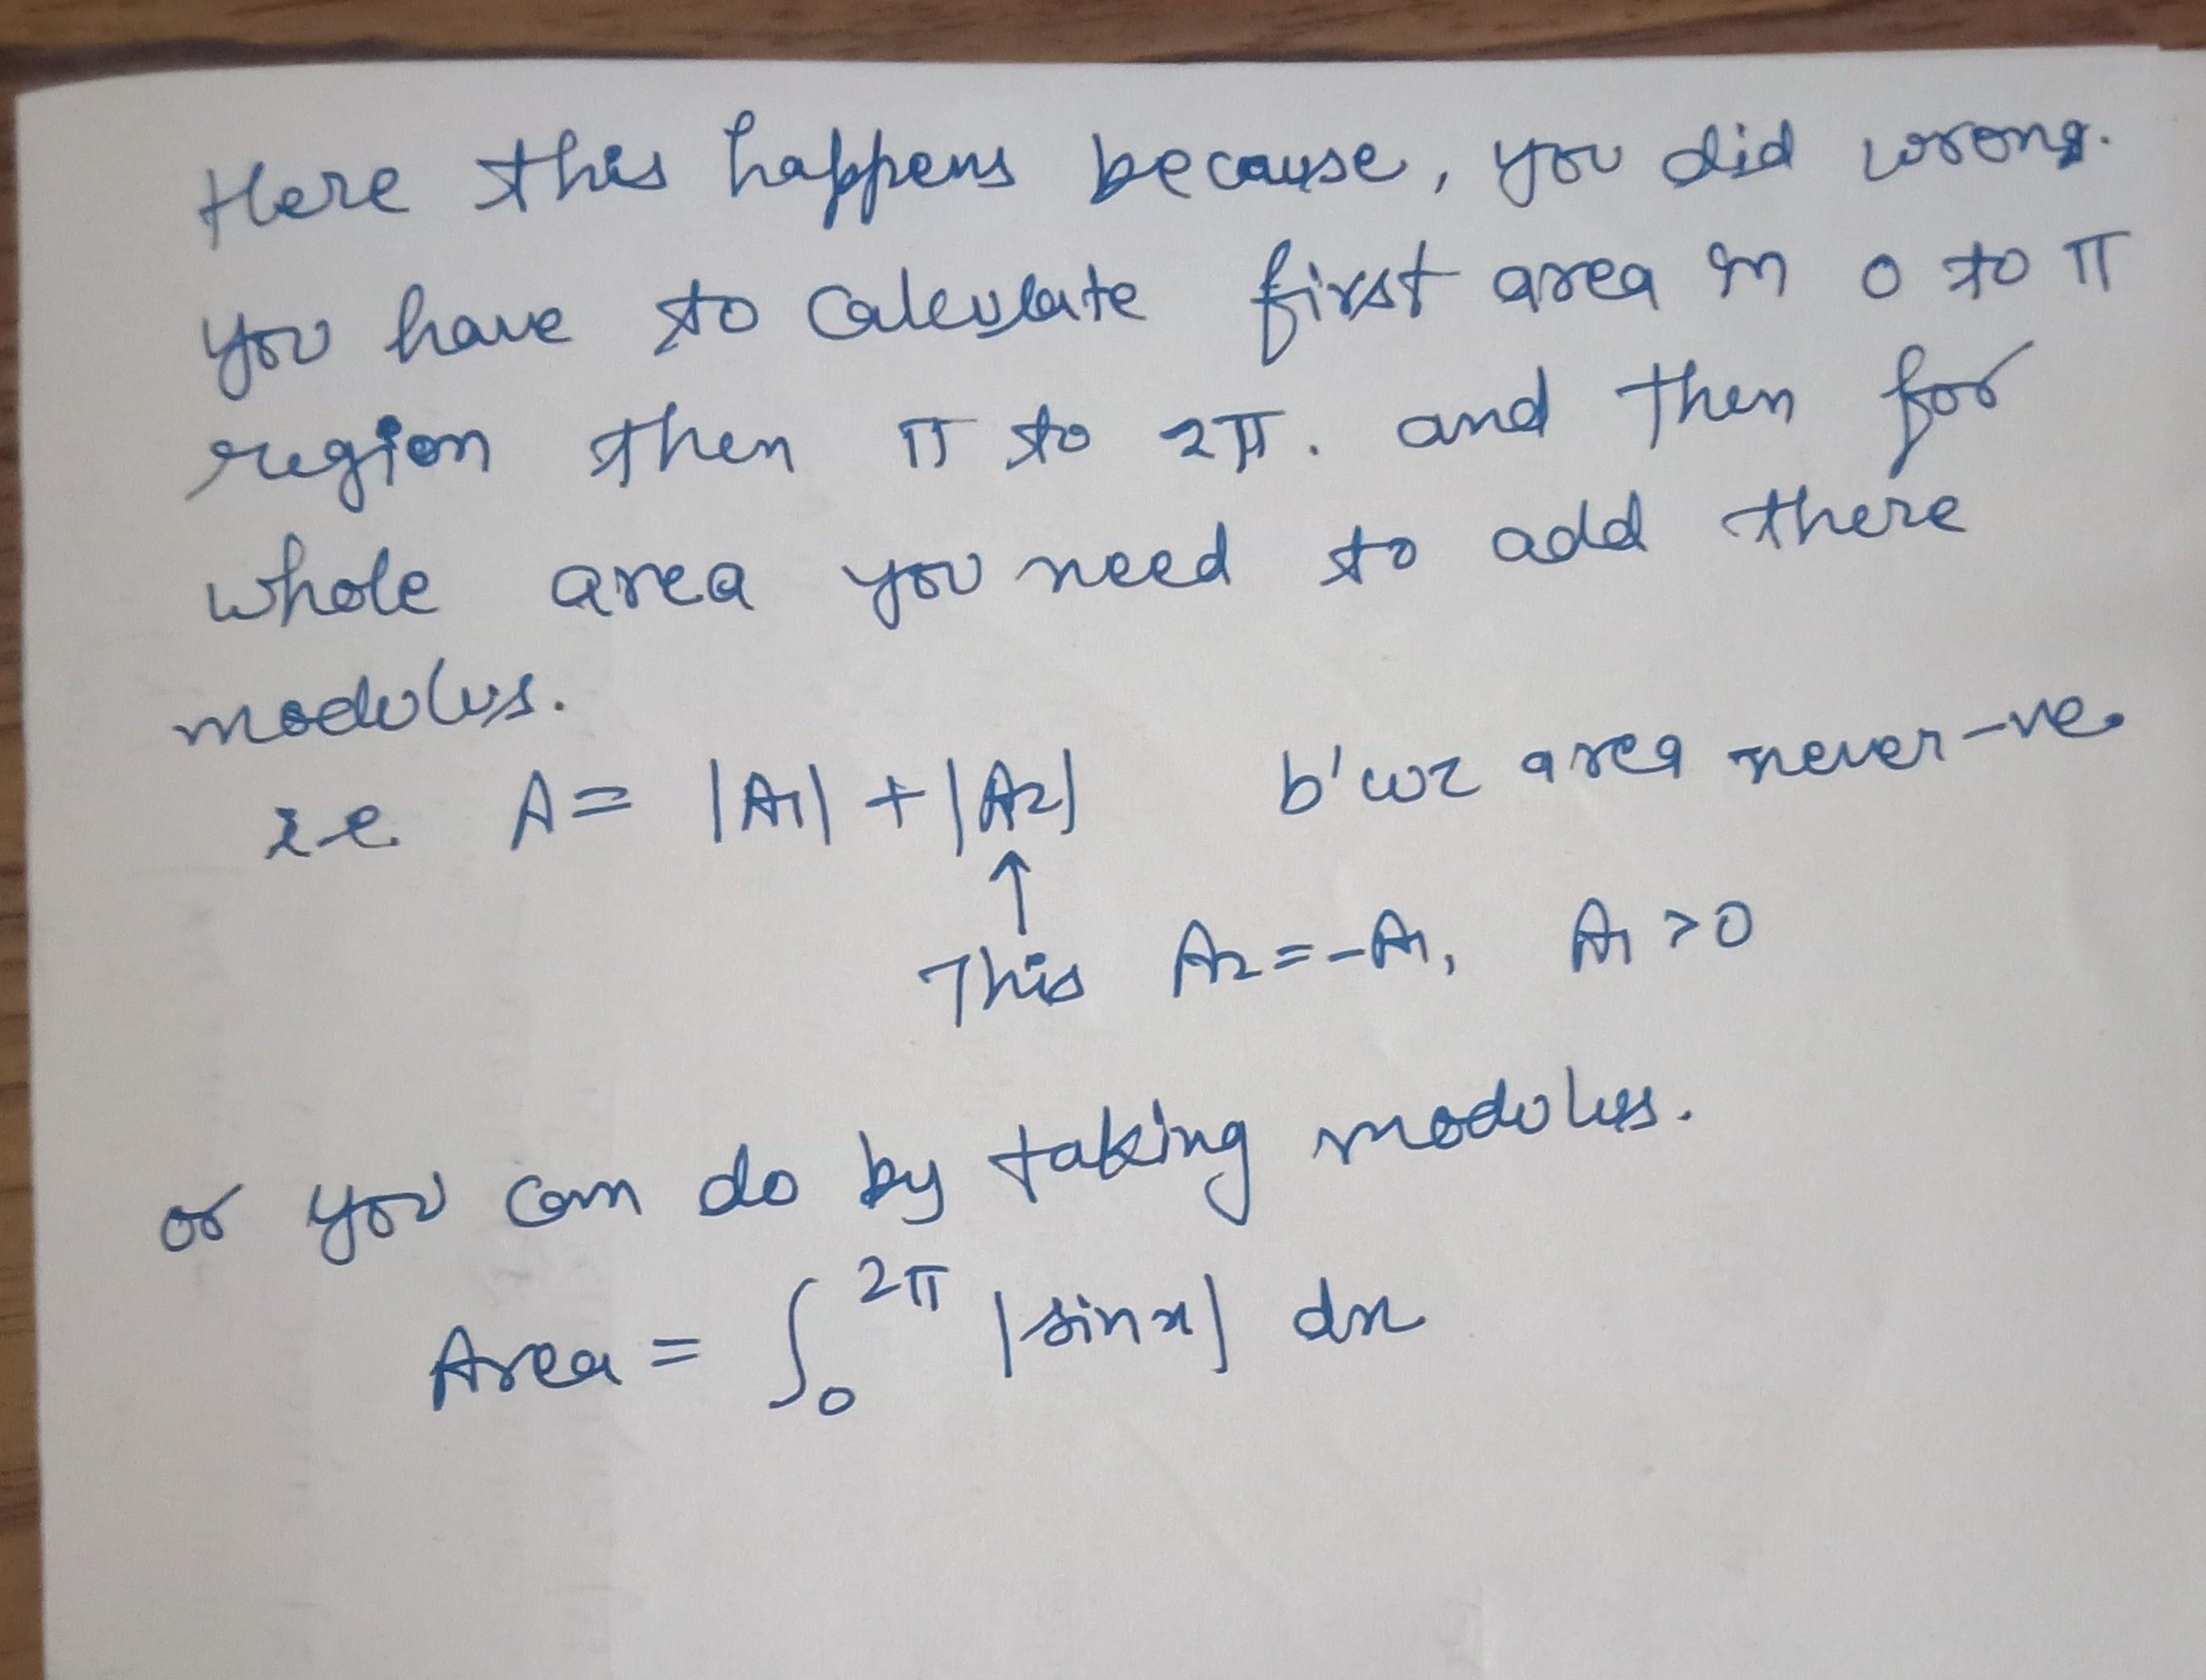 Here this happens because, you did wrong.
you have to calculate first area in 0 to π
region then π to 2π. and then for
whole area you need to add there
modulus.
ie A = |A1| + |A2| b'coz area never -ve.
↑
This A2 = -A1, A1 > 0
or you can do by taking modulus.
Area = ∫₀^2π |sinx| dx